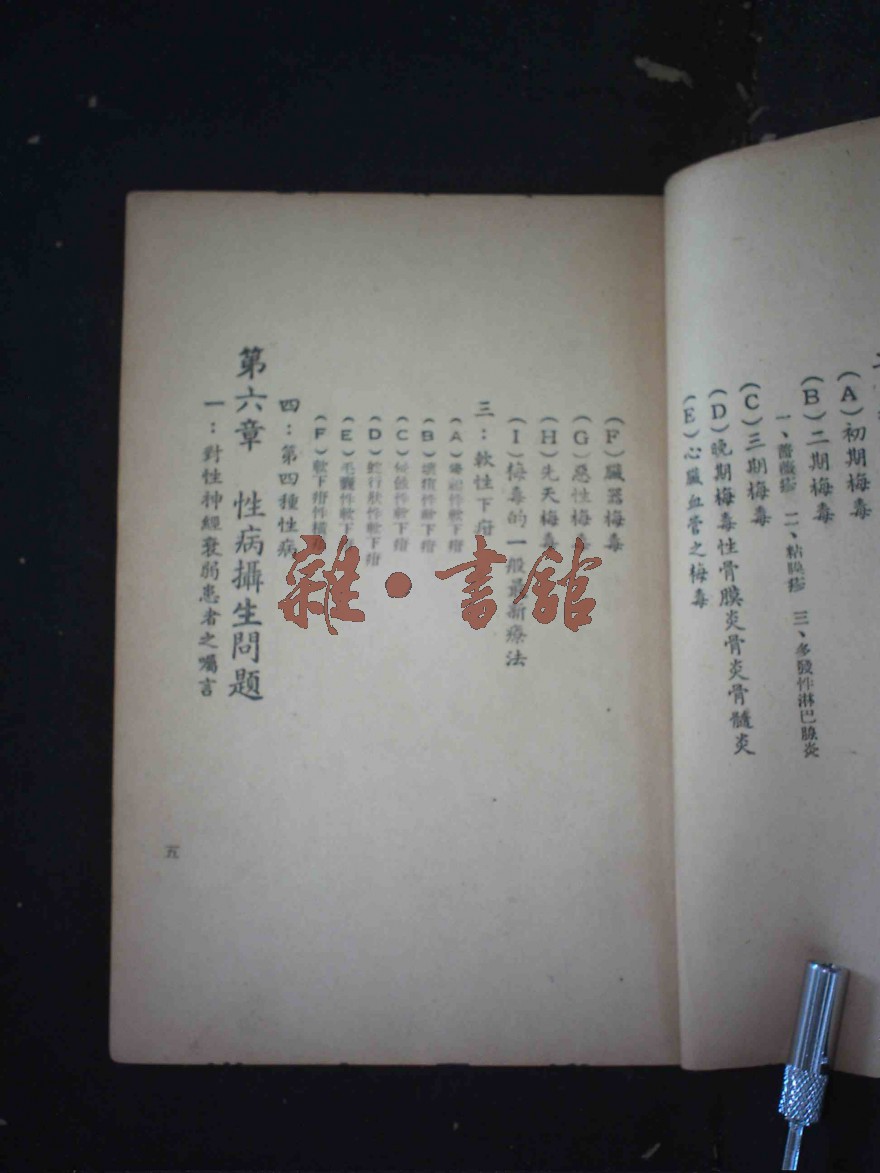 (A)初期梅毒
(B)二期梅毒
一、薔薇疹 二、粘膜疹 三、多發性淋巴腺炎
(C)三期梅毒
(D)晚期梅毒性骨膜炎骨炎骨髓炎
(E)心臟血管之梅毒
(F)臟器梅毒
(G)惡性梅毒
(H)先天梅毒
(I)梅毒的一般最新療法
三：軟性下疳
(A)性軟下疳
(B)壞疽性軟下疳
(C)性軟下疳
(D)蛇行狀性軟下疳
(E)毛囊性軟下疳
(F)軟下疳性橫
四：第四種性病
第六章 性病攝生問題
一：對性神經衰弱患者之囑言
五
雜·書館